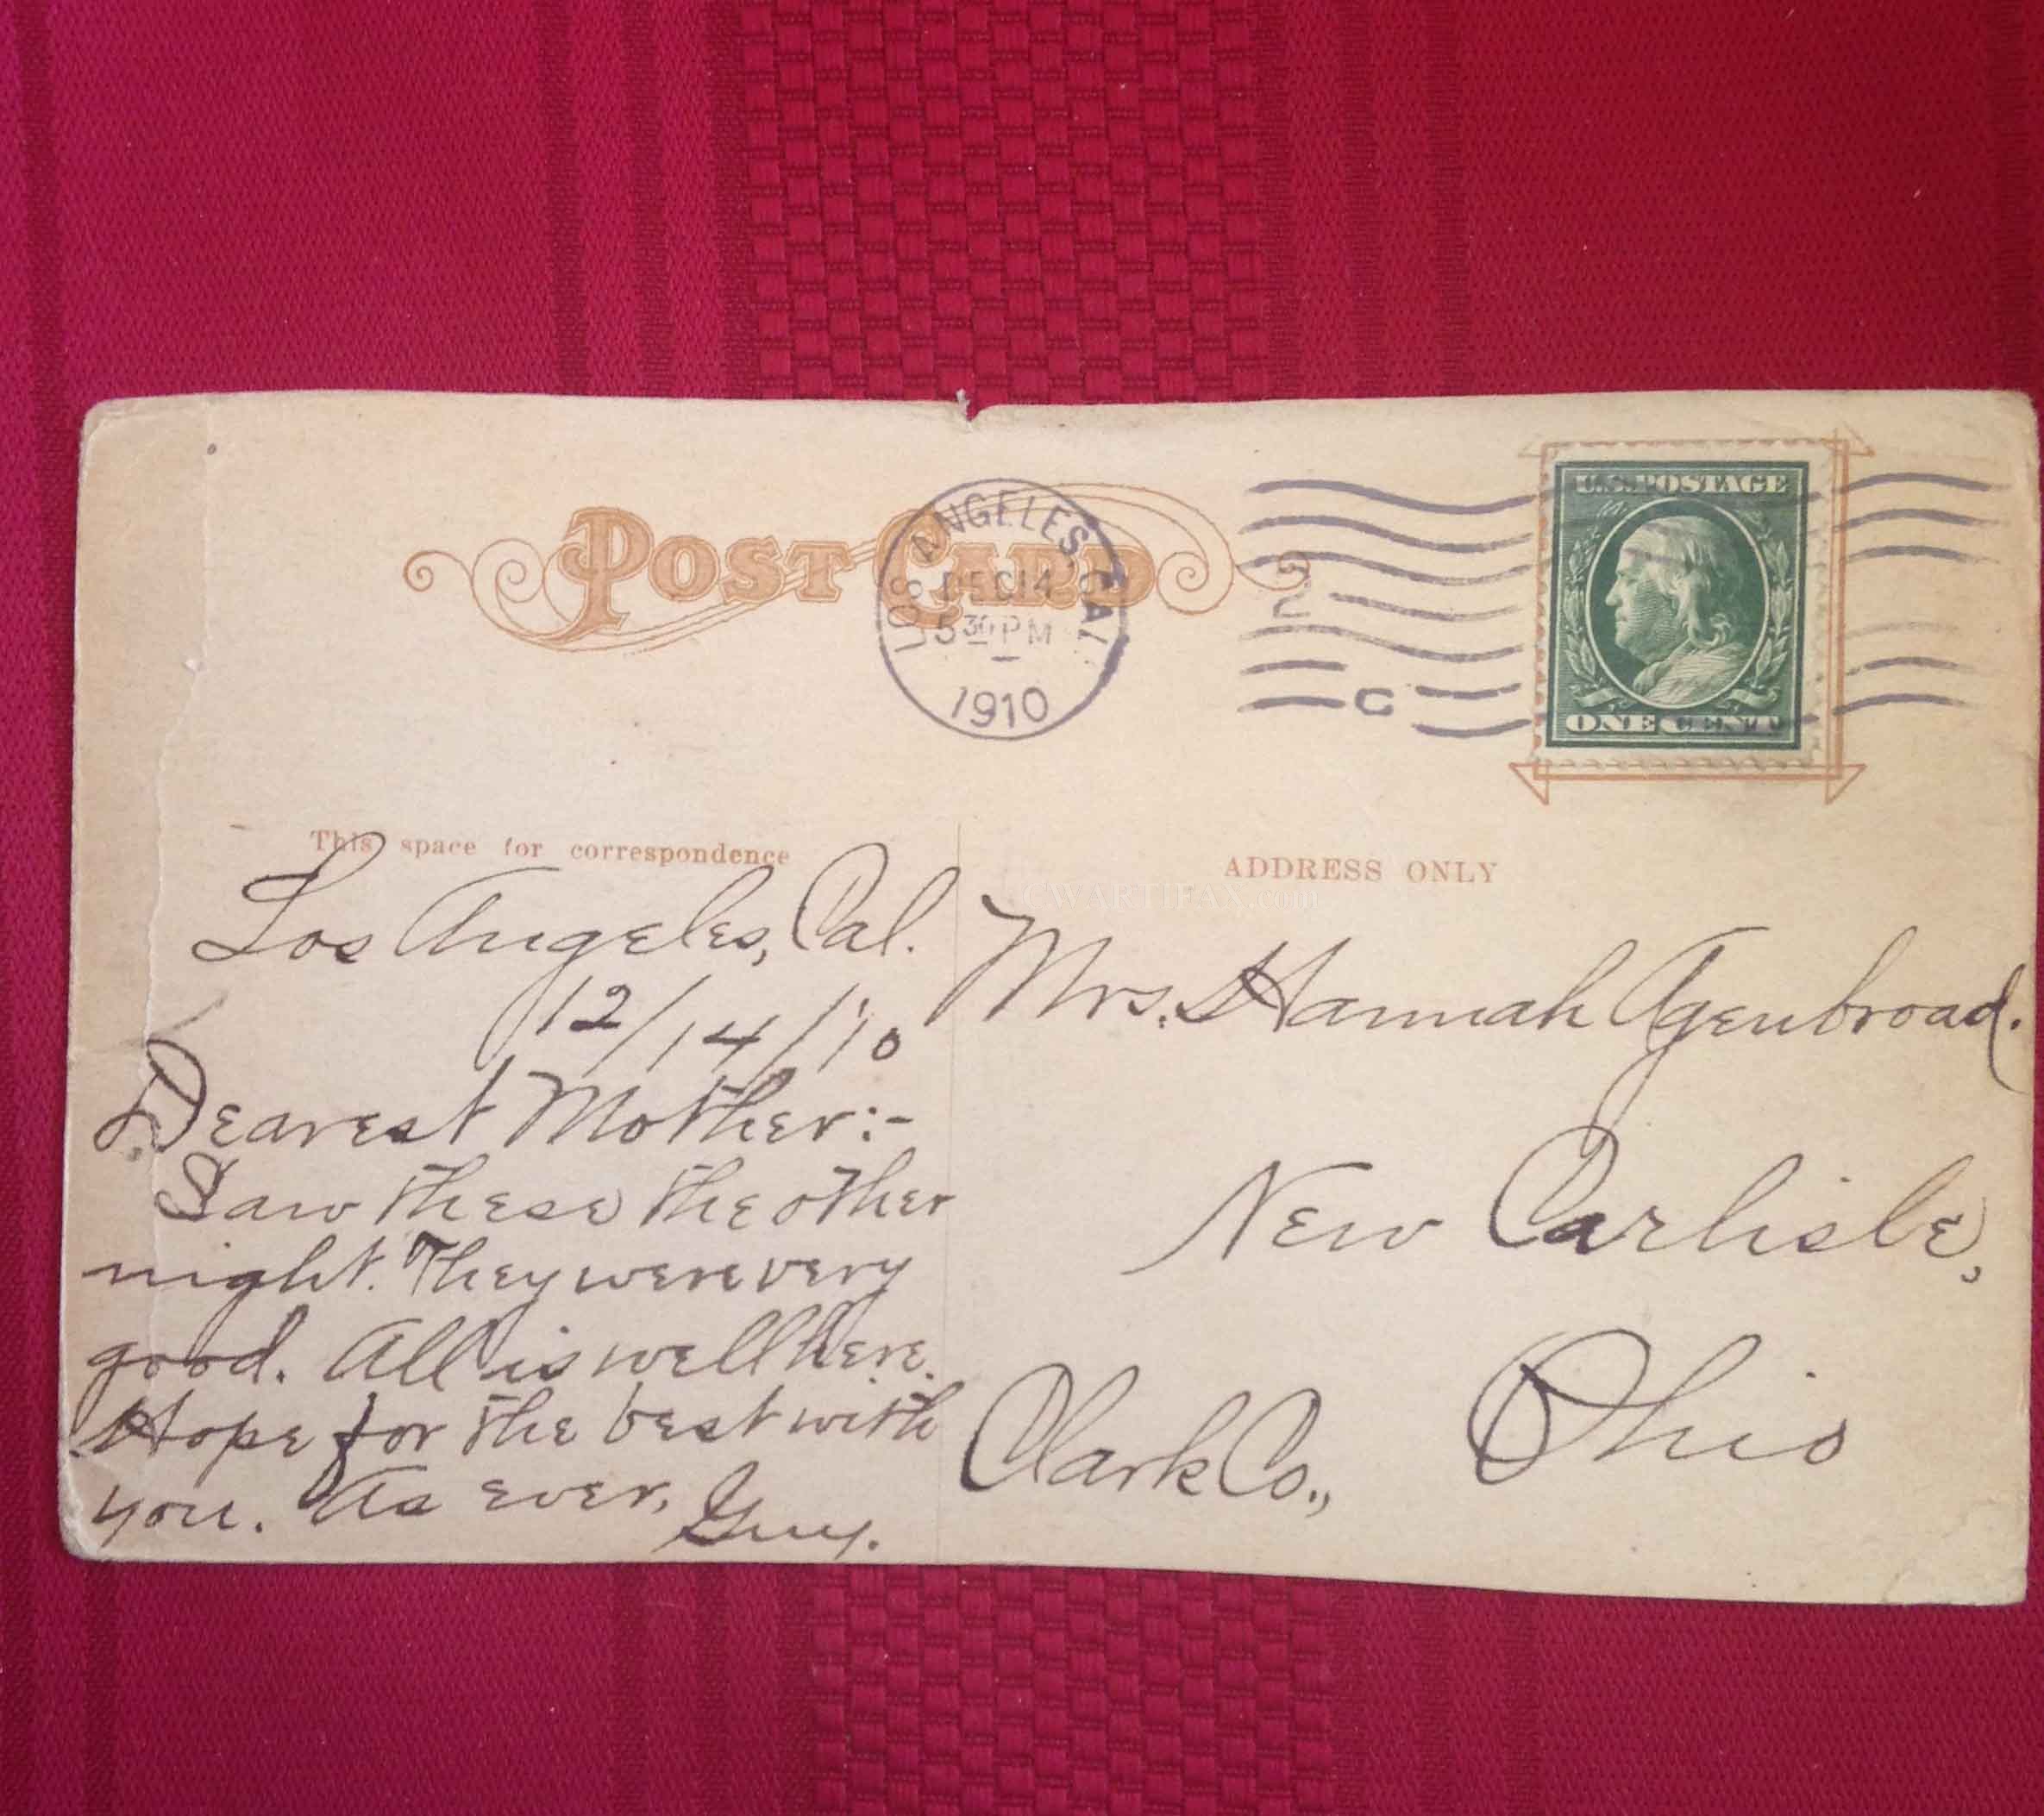 POST CARD
LOS ANGELES, CAL
DEC 14
5 30 PM
1910
2
C
U.S. POSTAGE
ONE CENT
This space for correspondence
ADDRESS ONLY
CWARTIFAX.com
Los Angeles, Cal.
12/14/'10
Dearest Mother:-
Saw these the other
night. They were very
good. All is well here.
Hope for the best with
you. As ever, Guy.
Mrs. Hannah Agenbroad.
New Carlisle,
Clark Co., Ohio